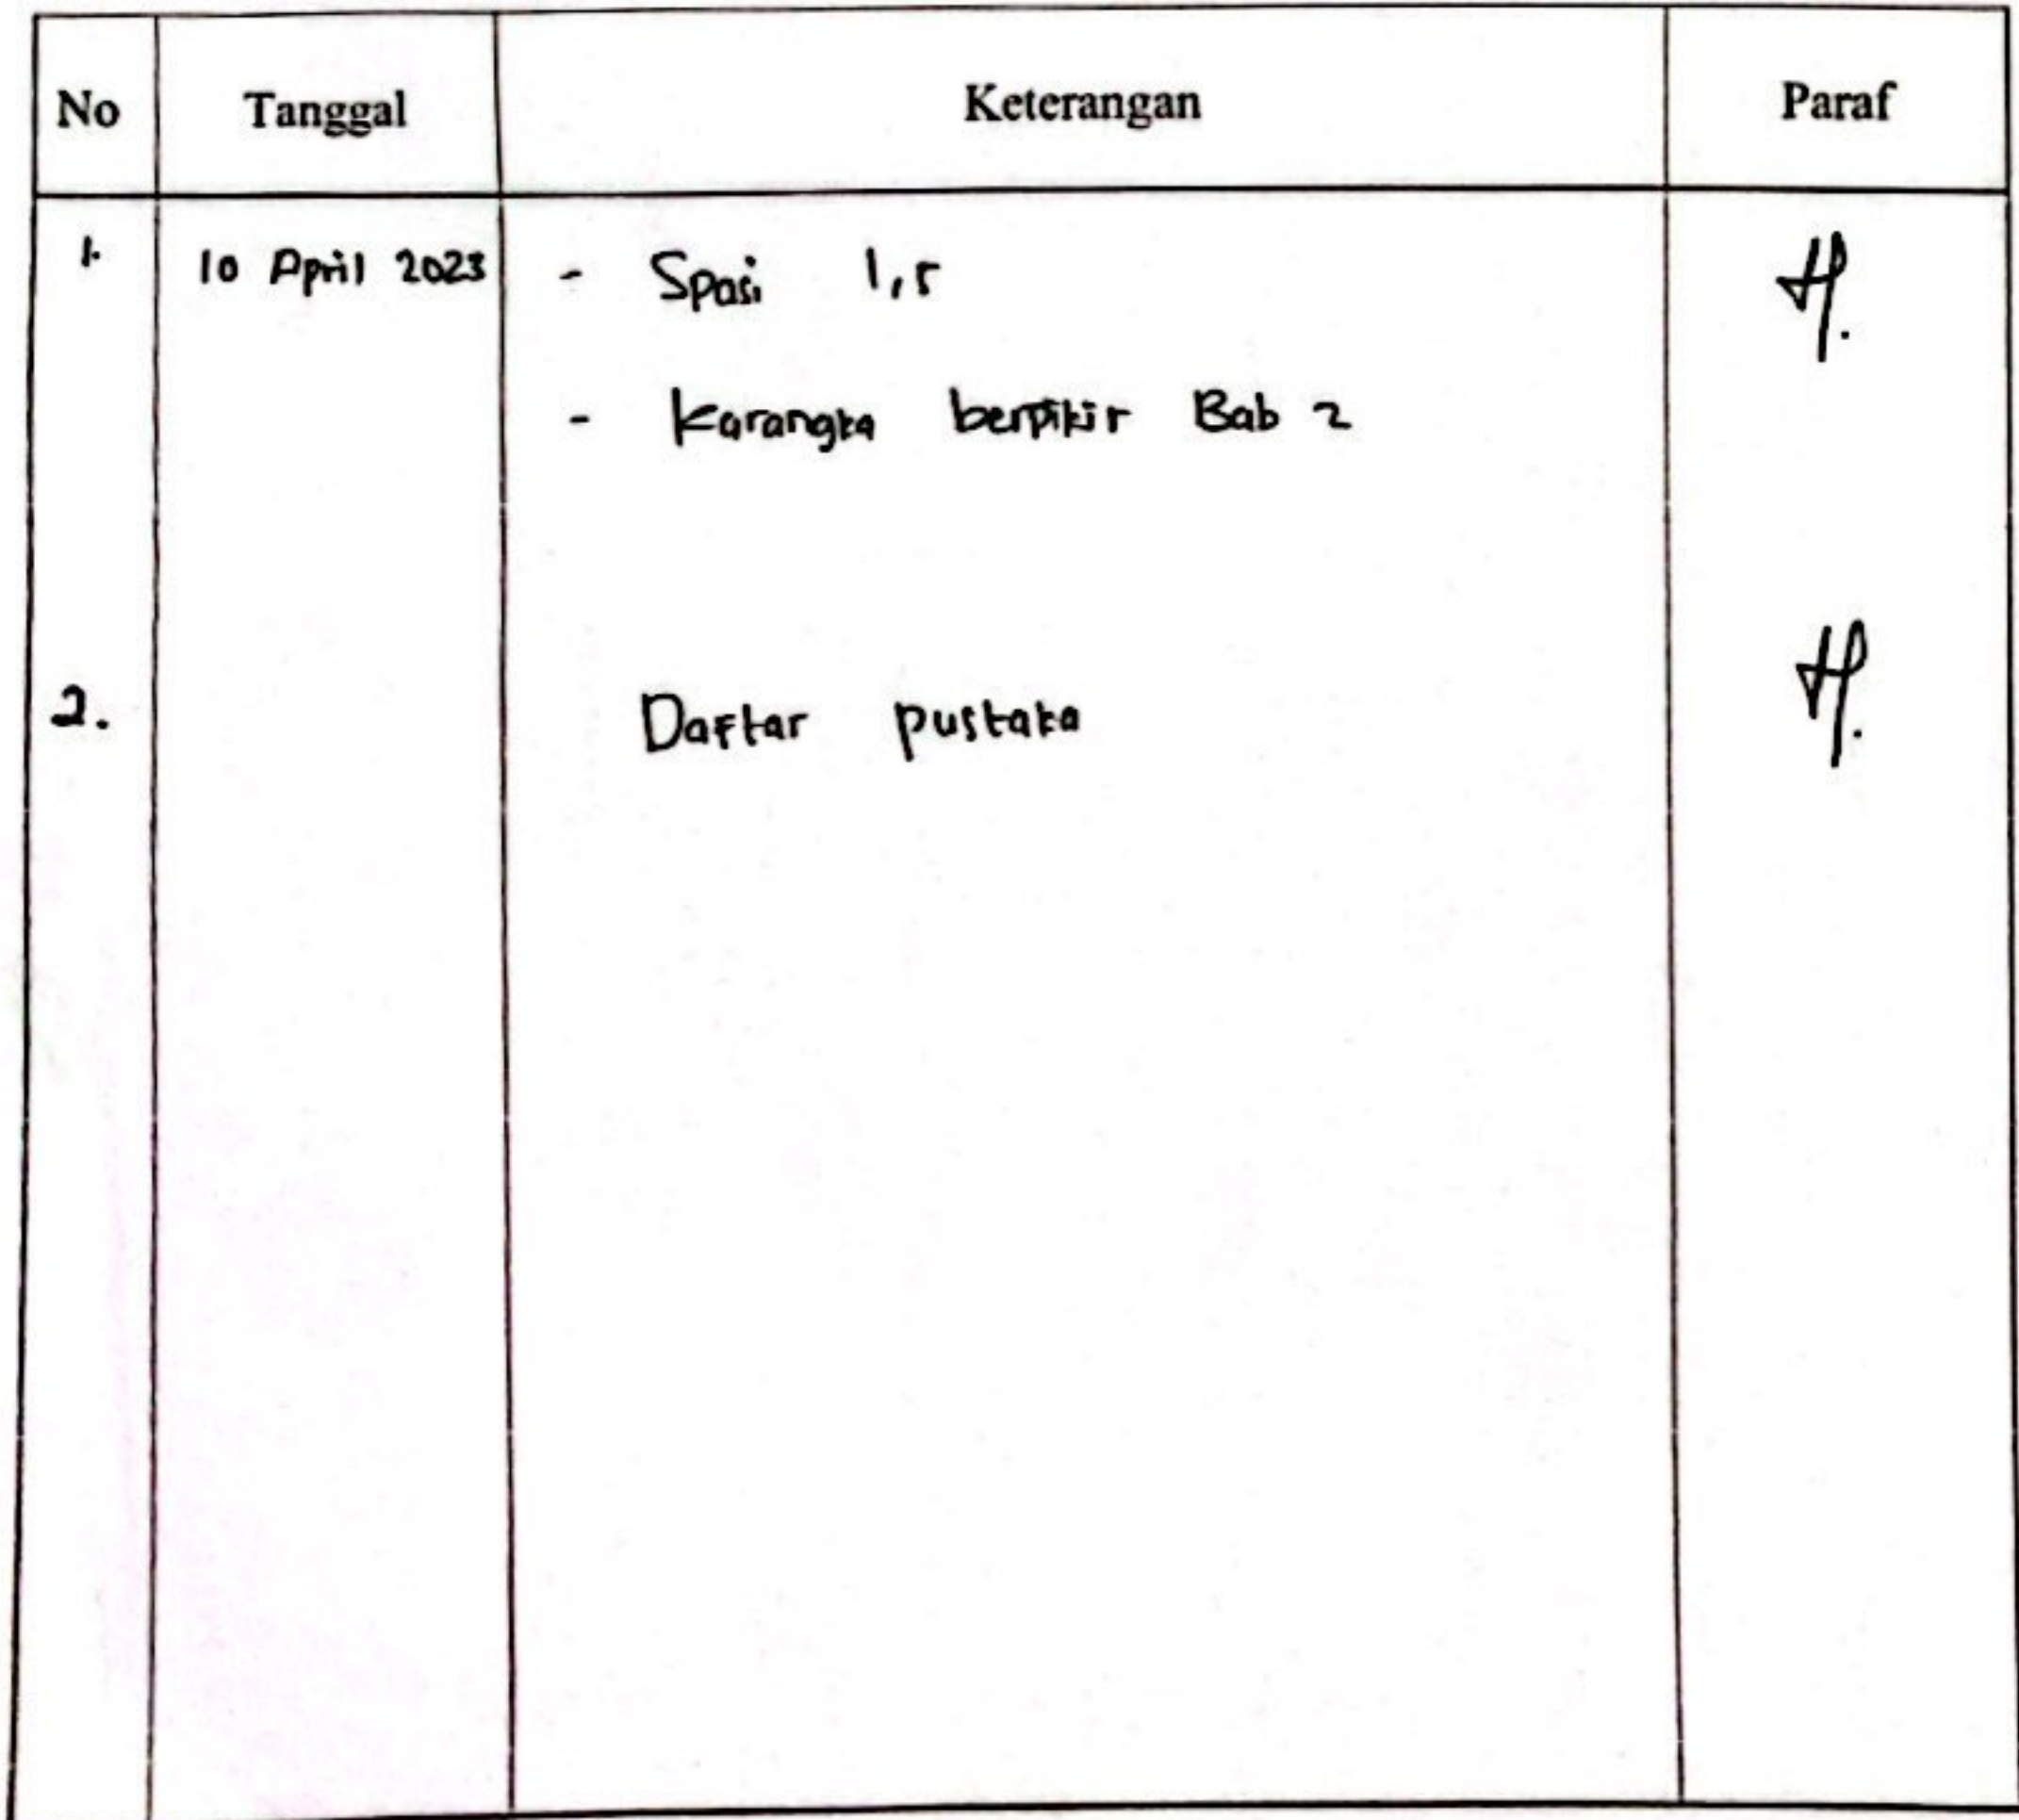 No Tanggal Keterangan Paraf
1. 10 April 2023 - Spasi 1,5
- Karangka berpikir Bab 2
2. Daftar pustaka